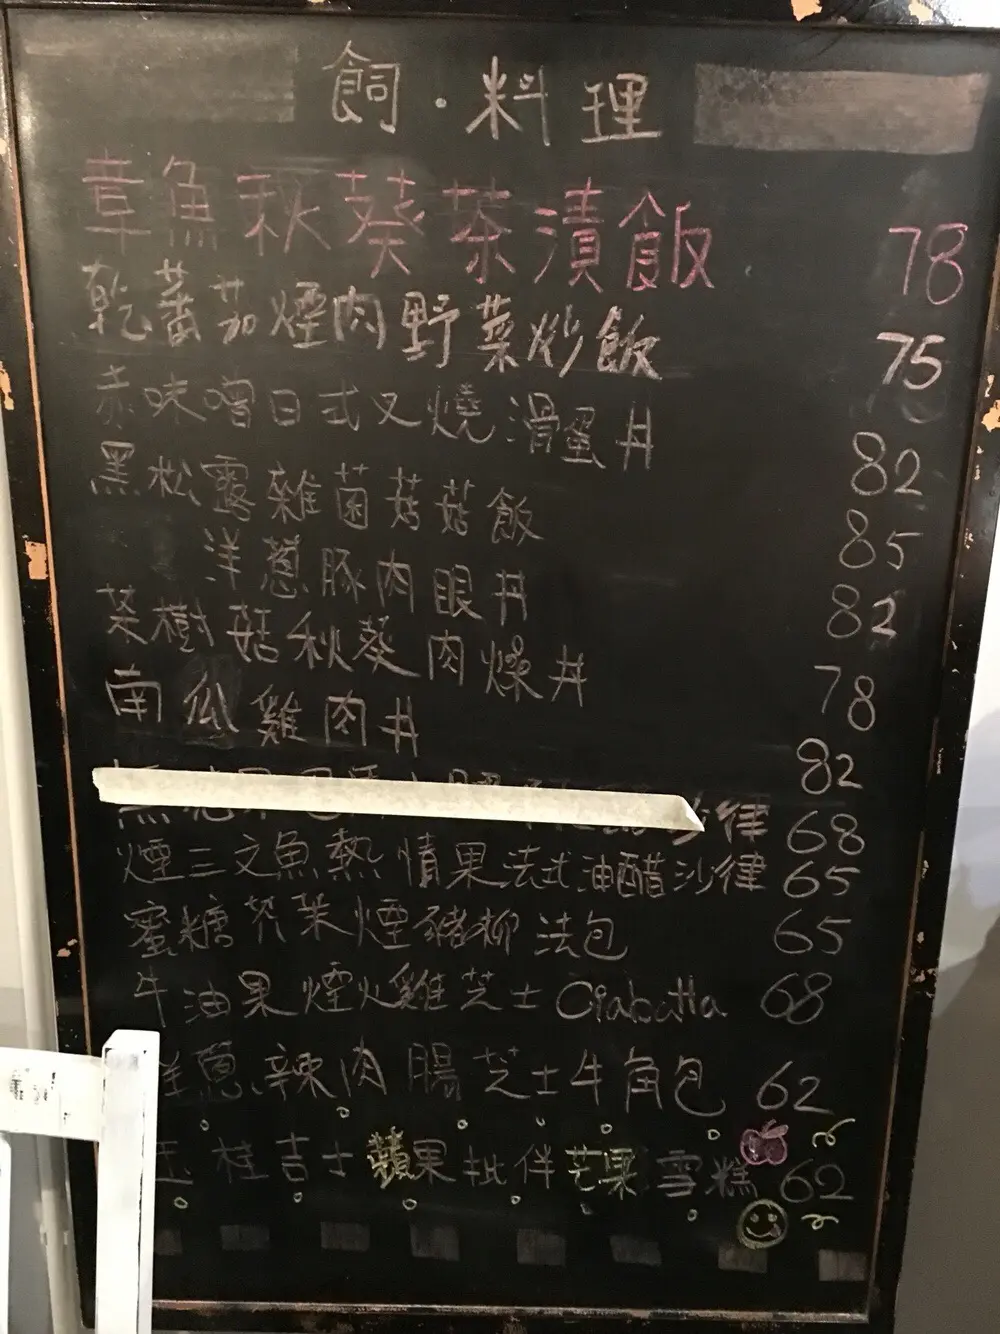 飼·料理
章魚秋葵茶漬飯 78
乾蕃茄煙肉野菜炒飯 75
赤味噌日式叉燒滑蛋丼 82
黑松露雜菌菇菇飯 85
洋蔥豚肉眼丼 82
茶樹菇秋葵肉燥丼 78
南瓜雞肉丼 82
沙律 68
煙三文魚熱情果法式油醋沙律 65
蜜糖芥茉煙豬柳法包 65
牛油果煙火雞芝士Ciabatta 68
洋蔥辣肉腸芝士牛角包 62
玉桂吉士蘋果批伴芒果雪糕 62